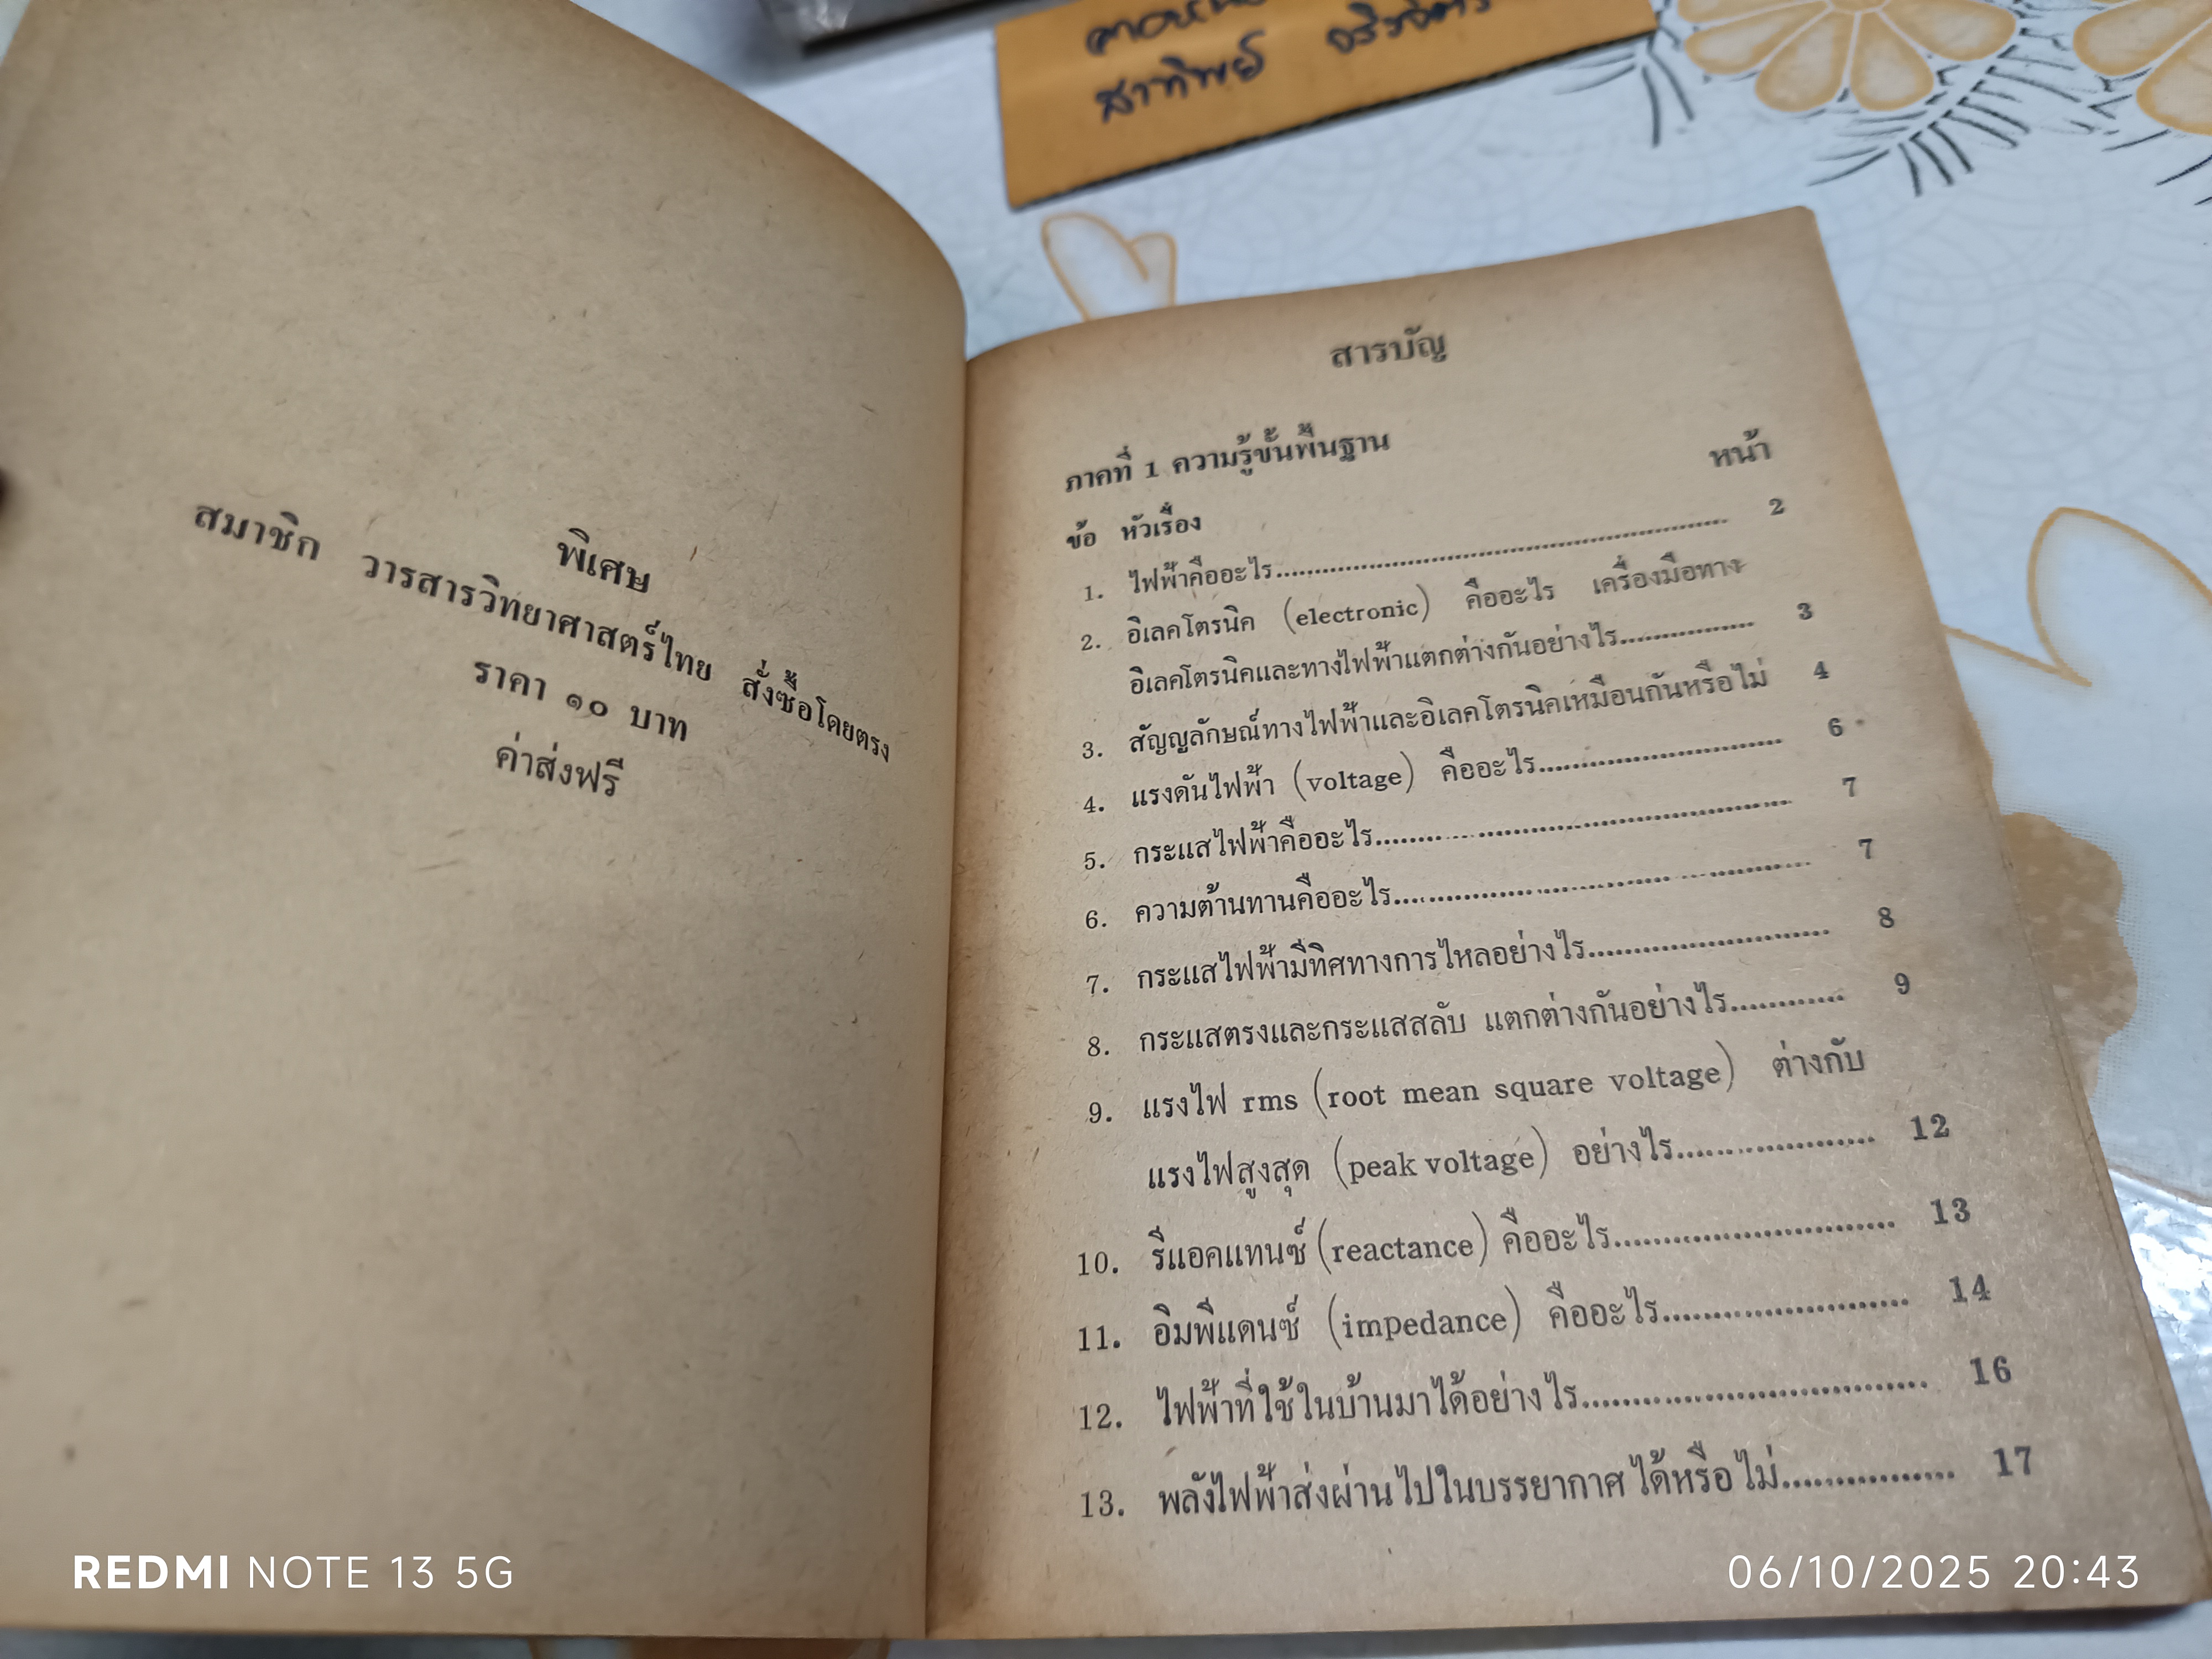 สาทิพย์
พิเศษ
สมาชิก วารสารวิทยาศาสตร์ไทย สั่งซื้อโดยตรง
ราคา ๑๐ บาท
ค่าส่งฟรี
สารบัญ
ภาคที่ 1 ความรู้ขั้นพื้นฐาน
หน้า
ข้อ หัวเรื่อง
1. ไฟฟ้าคืออะไร 2
2. อิเลคโตรนิค (electronic) คืออะไร เครื่องมือทาง
อิเลคโตรนิคและทางไฟฟ้าแตกต่างกันอย่างไร 3
3. สัญญลักษณ์ทางไฟฟ้าและอิเลคโตรนิคเหมือนกันหรือไม่ 4
4. แรงดันไฟฟ้า (voltage) คืออะไร 6
5. กระแสไฟฟ้าคืออะไร 7
6. ความต้านทานคืออะไร 7
7. กระแสไฟฟ้ามีทิศทางการไหลอย่างไร 8
8. กระแสตรงและกระแสสลับ แตกต่างกันอย่างไร 9
9. แรงไฟ rms (root mean square voltage) ต่างกับ
แรงไฟสูงสุด (peak voltage) อย่างไร 12
10. รีแอคแทนซ์ (reactance) คืออะไร 13
11. อิมพีแดนซ์ (impedance) คืออะไร 14
12. ไฟฟ้าที่ใช้ในบ้านมาได้อย่างไร 16
13. พลังไฟฟ้าส่งผ่านไปในบรรยากาศได้หรือไม่ 17
REDMI NOTE 13 5G
06/10/2025 20:43